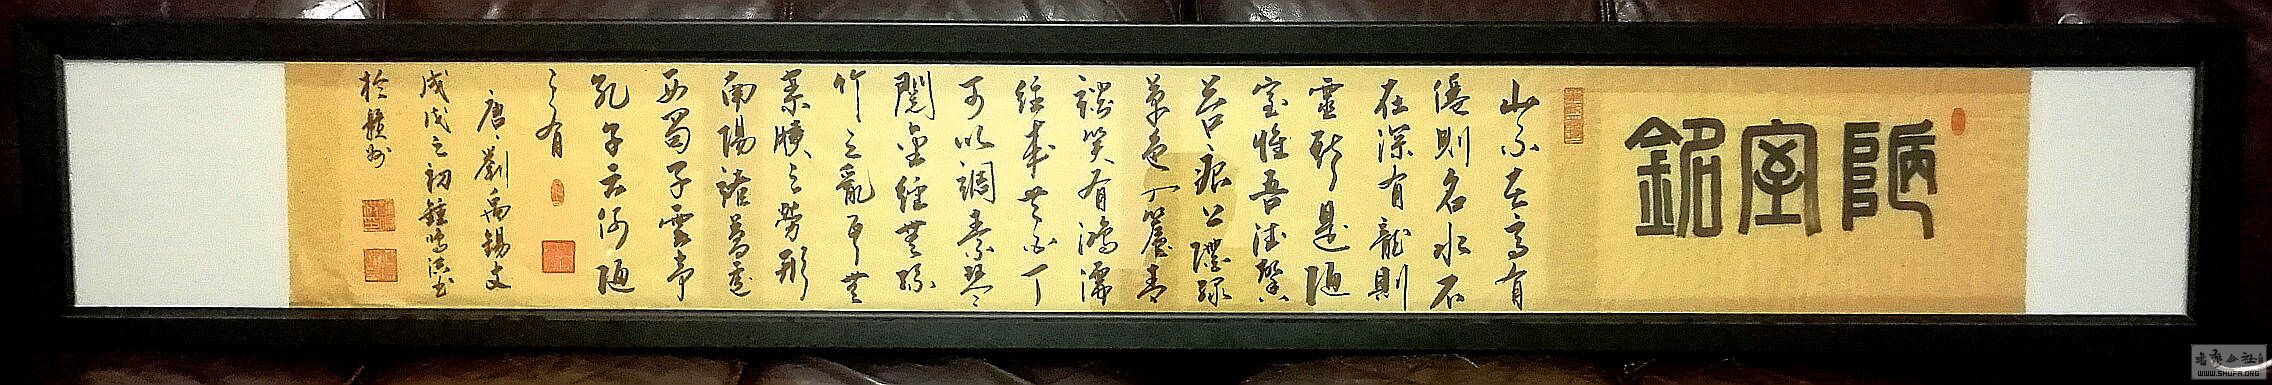 陋室銘
山不在高有
僊則名水不
在深有龍則
靈斯是陋
室惟吾德馨
苔痕上階綠
草色入簾青
談笑有鴻儒
往來無白丁
可以調素琴
閱金經無絲
竹之亂耳無
案牘之勞形
南陽諸葛廬
西蜀子雲亭
孔子云何陋
之有
唐劉禹錫文
戊戌之初鍾鳴書
於贛州
WWW.SHUFA.ORG